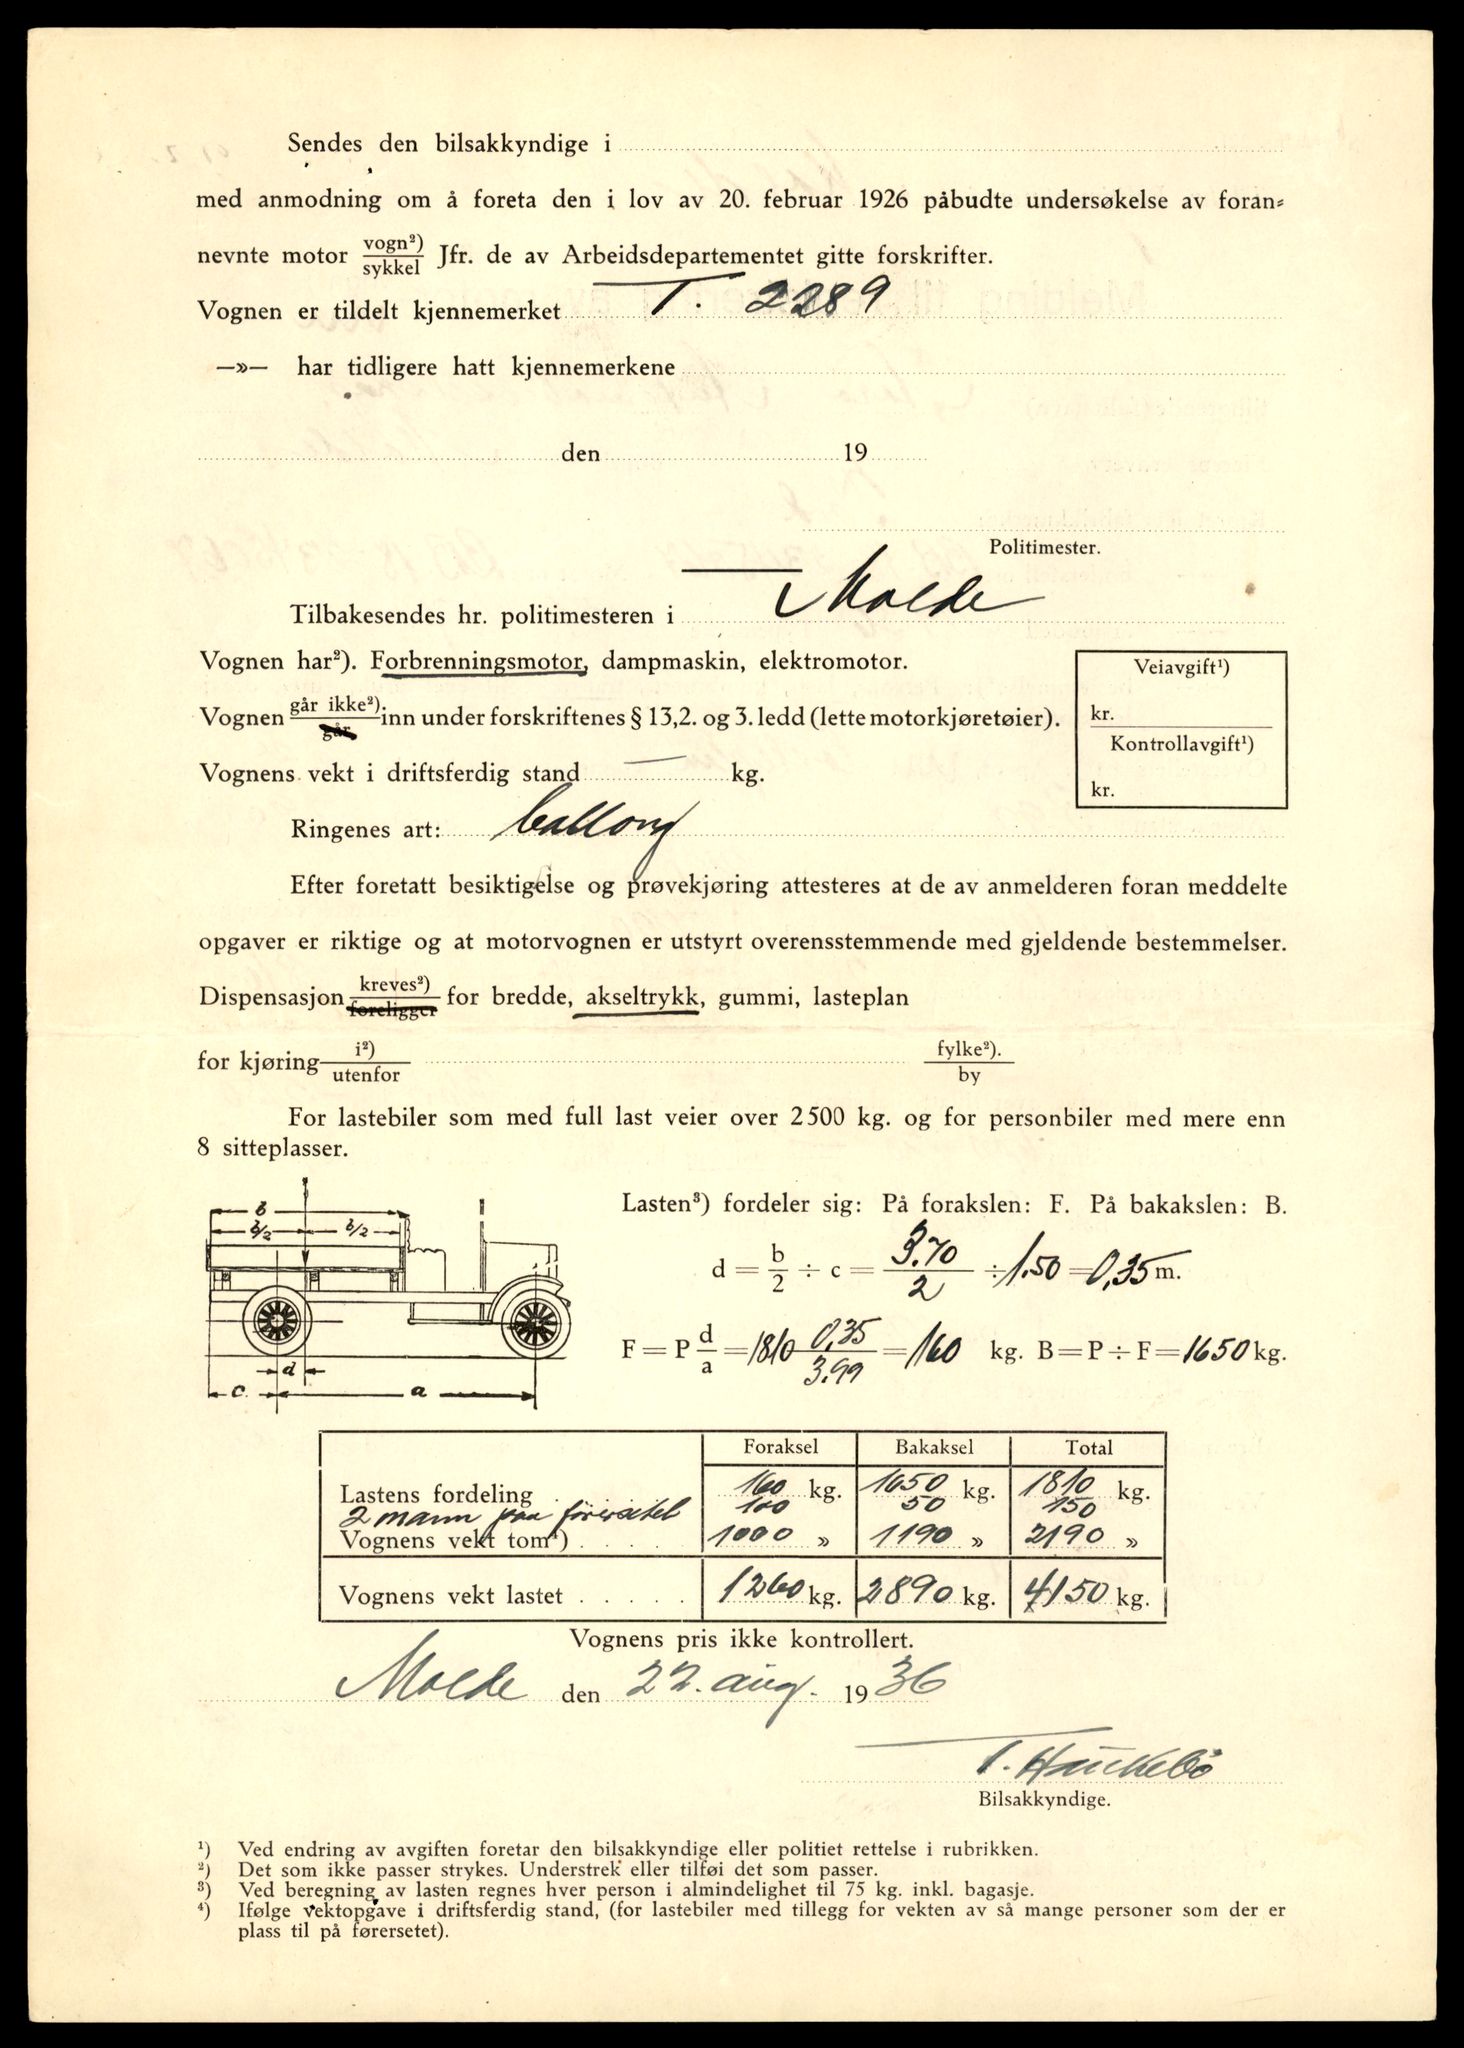 Sendes den bilsakkyndige i
med anmodning om å foreta den i lov av 20. februar 1926 påbudte undersøkelse av foran=
nevnte motor vogn²) / sykkel Jfr. de av Arbeidsdepartementet gitte forskrifter.
Vognen er tildelt kjennemerket T. 2289
—»— har tidligere hatt kjennemerkene
den 19
Politimester.
Tilbakesendes hr. politimesteren i Molde
Vognen har²). Forbrenningsmotor, dampmaskin, elektromotor.
Veiavgift¹)
kr.
Kontrollavgift¹)
kr.
Vognen går ikke²) / går inn under forskriftenes § 13,2. og 3. ledd (lette motorkjøretøier).
Vognens vekt i driftsferdig stand — kg.
Ringenes art: ballong
Efter foretatt besiktigelse og prøvekjøring attesteres at de av anmelderen foran meddelte
opgaver er riktige og at motorvognen er utstyrt overensstemmende med gjeldende bestemmelser.
Dispensasjon kreves²) / foreligger for bredde, akseltrykk, gummi, lasteplan
for kjøring i²) / utenfor fylke²). / by
For lastebiler som med full last veier over 2500 kg. og for personbiler med mere enn
8 sitteplasser.
b
b/2 b/2
d
c a
Lasten³) fordeler sig: På forakslen: F. På bakakslen: B.
d = b/2 ÷ c = 3.70/2 ÷ 1.50 = 0,35 m.
F = P d/a = 1810 0,35/3.99 = 160 kg. B = P ÷ F = 1650 kg.
Foraksel Bakaksel Total
Lastens fordeling 160 kg. 1650 kg. 1810 kg.
2 mann paa förersetet 100 50 150
Vognens vekt tom⁴) . . . . 1000 » 1190 » 2190 »
Vognens vekt lastet . . . . . 1260 kg. 2890 kg. 4150 kg.
Vognens pris ikke kontrollert.
Molde den 22. aug. 1936
T. Haukebö
Bilsakkyndige.
¹) Ved endring av avgiften foretar den bilsakkyndige eller politiet rettelse i rubrikken.
²) Det som ikke passer strykes. Understrek eller tilføi det som passer.
³) Ved beregning av lasten regnes hver person i almindelighet til 75 kg. inkl. bagasje.
⁴) Ifølge vektopgave i driftsferdig stand, (for lastebiler med tillegg for vekten av så mange personer som der er
plass til på førersetet).